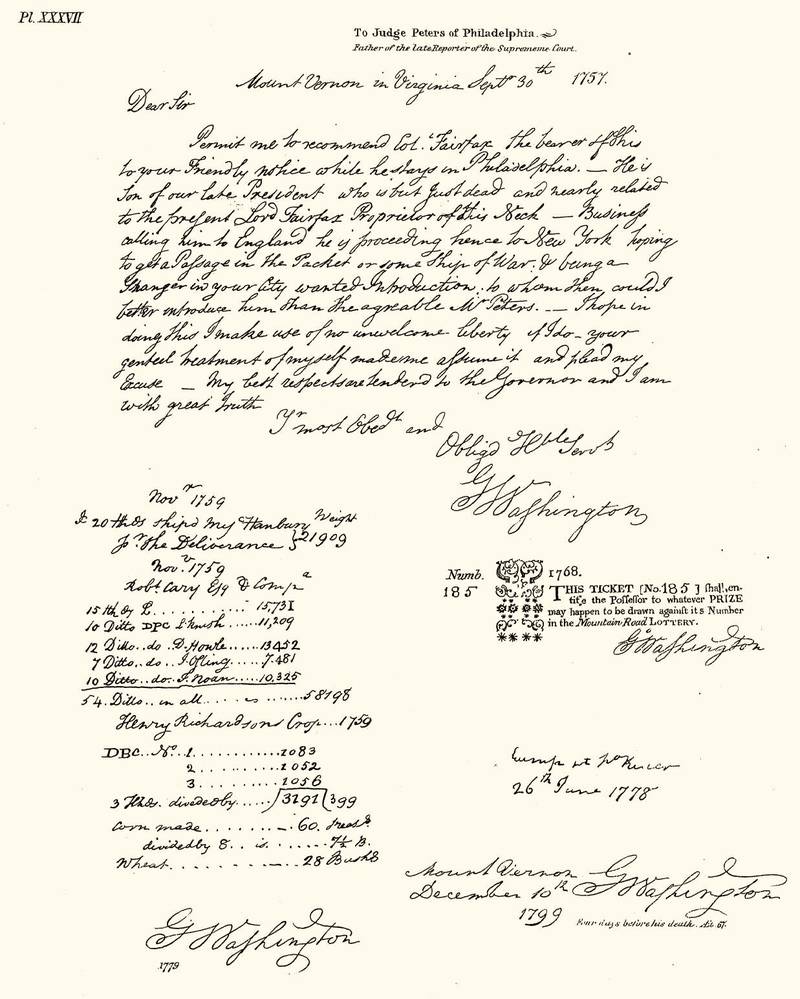 Pl. XXXVII
To Judge Peters of Philadelphia.
Father of the late Reporter of the Supromeme Court.
Mount Vernon in Virginia Septr 30th 1757.
Dear Sir
Permit me to recommend Col. Fairfax the bearer of this
to your Friendly notice while he stays in Philadelphia. — He is
Son of our late President who is but just dead and nearly related
to the present Lord Fairfax Proprietor of this Neck — Business
calling him to England he is proceeding hence to New York hoping
to get a Passage in the Packet or some Ship of War. & being a
Stranger in your City wanted Introduction: to whom then, could I
better introduce him than the agreable Mr Peters. — I hope in
doing this I make use of no unwelcome liberty if I do — your
genteel treatment of myself made me assume it and plead my
Excuse — My best respects are tenderd to the Governor and I am
with great truth
Yr most Obedt and
Obligd Hble Servt
GWashington
Novr 1759
20 Hhds shipd my Hanbury Weight
pr the Deliverance } 21909
Novr 1759
Robt Cary Esq & Compa
15 Hhds L. .......... 15,731
10 Ditto DPC ...... 11,209
12 Ditto.. do .. D. Howle..... 13452
7 Ditto.. do .. J. Ofling..... 7.481
10 Ditto.. do. J. Noan..... 10,325
54. Ditto.. in all.... is ....... 58198
Henry Richardsons Crop... 1759
DBC.. No. 1............ 1083
2......... 1052
3......... 1056
3 Hhds. divided by..... 3191 (399
Corn made........ 60.
divided by 8.. is...... 7½ B.
Wheat.......... 28 Bushs
GWashington
1779
Numb. 185
1768.
THIS TICKET [No. 185] shall en-
title the Possessor to whatever PRIZE
may happen to be drawn against its Number
in the Mountain Road LOTTERY.
GWashington
26th June 1778
Mount Vernon
December 10th
1799
GWashington
Four days before his death. Æt. 67.